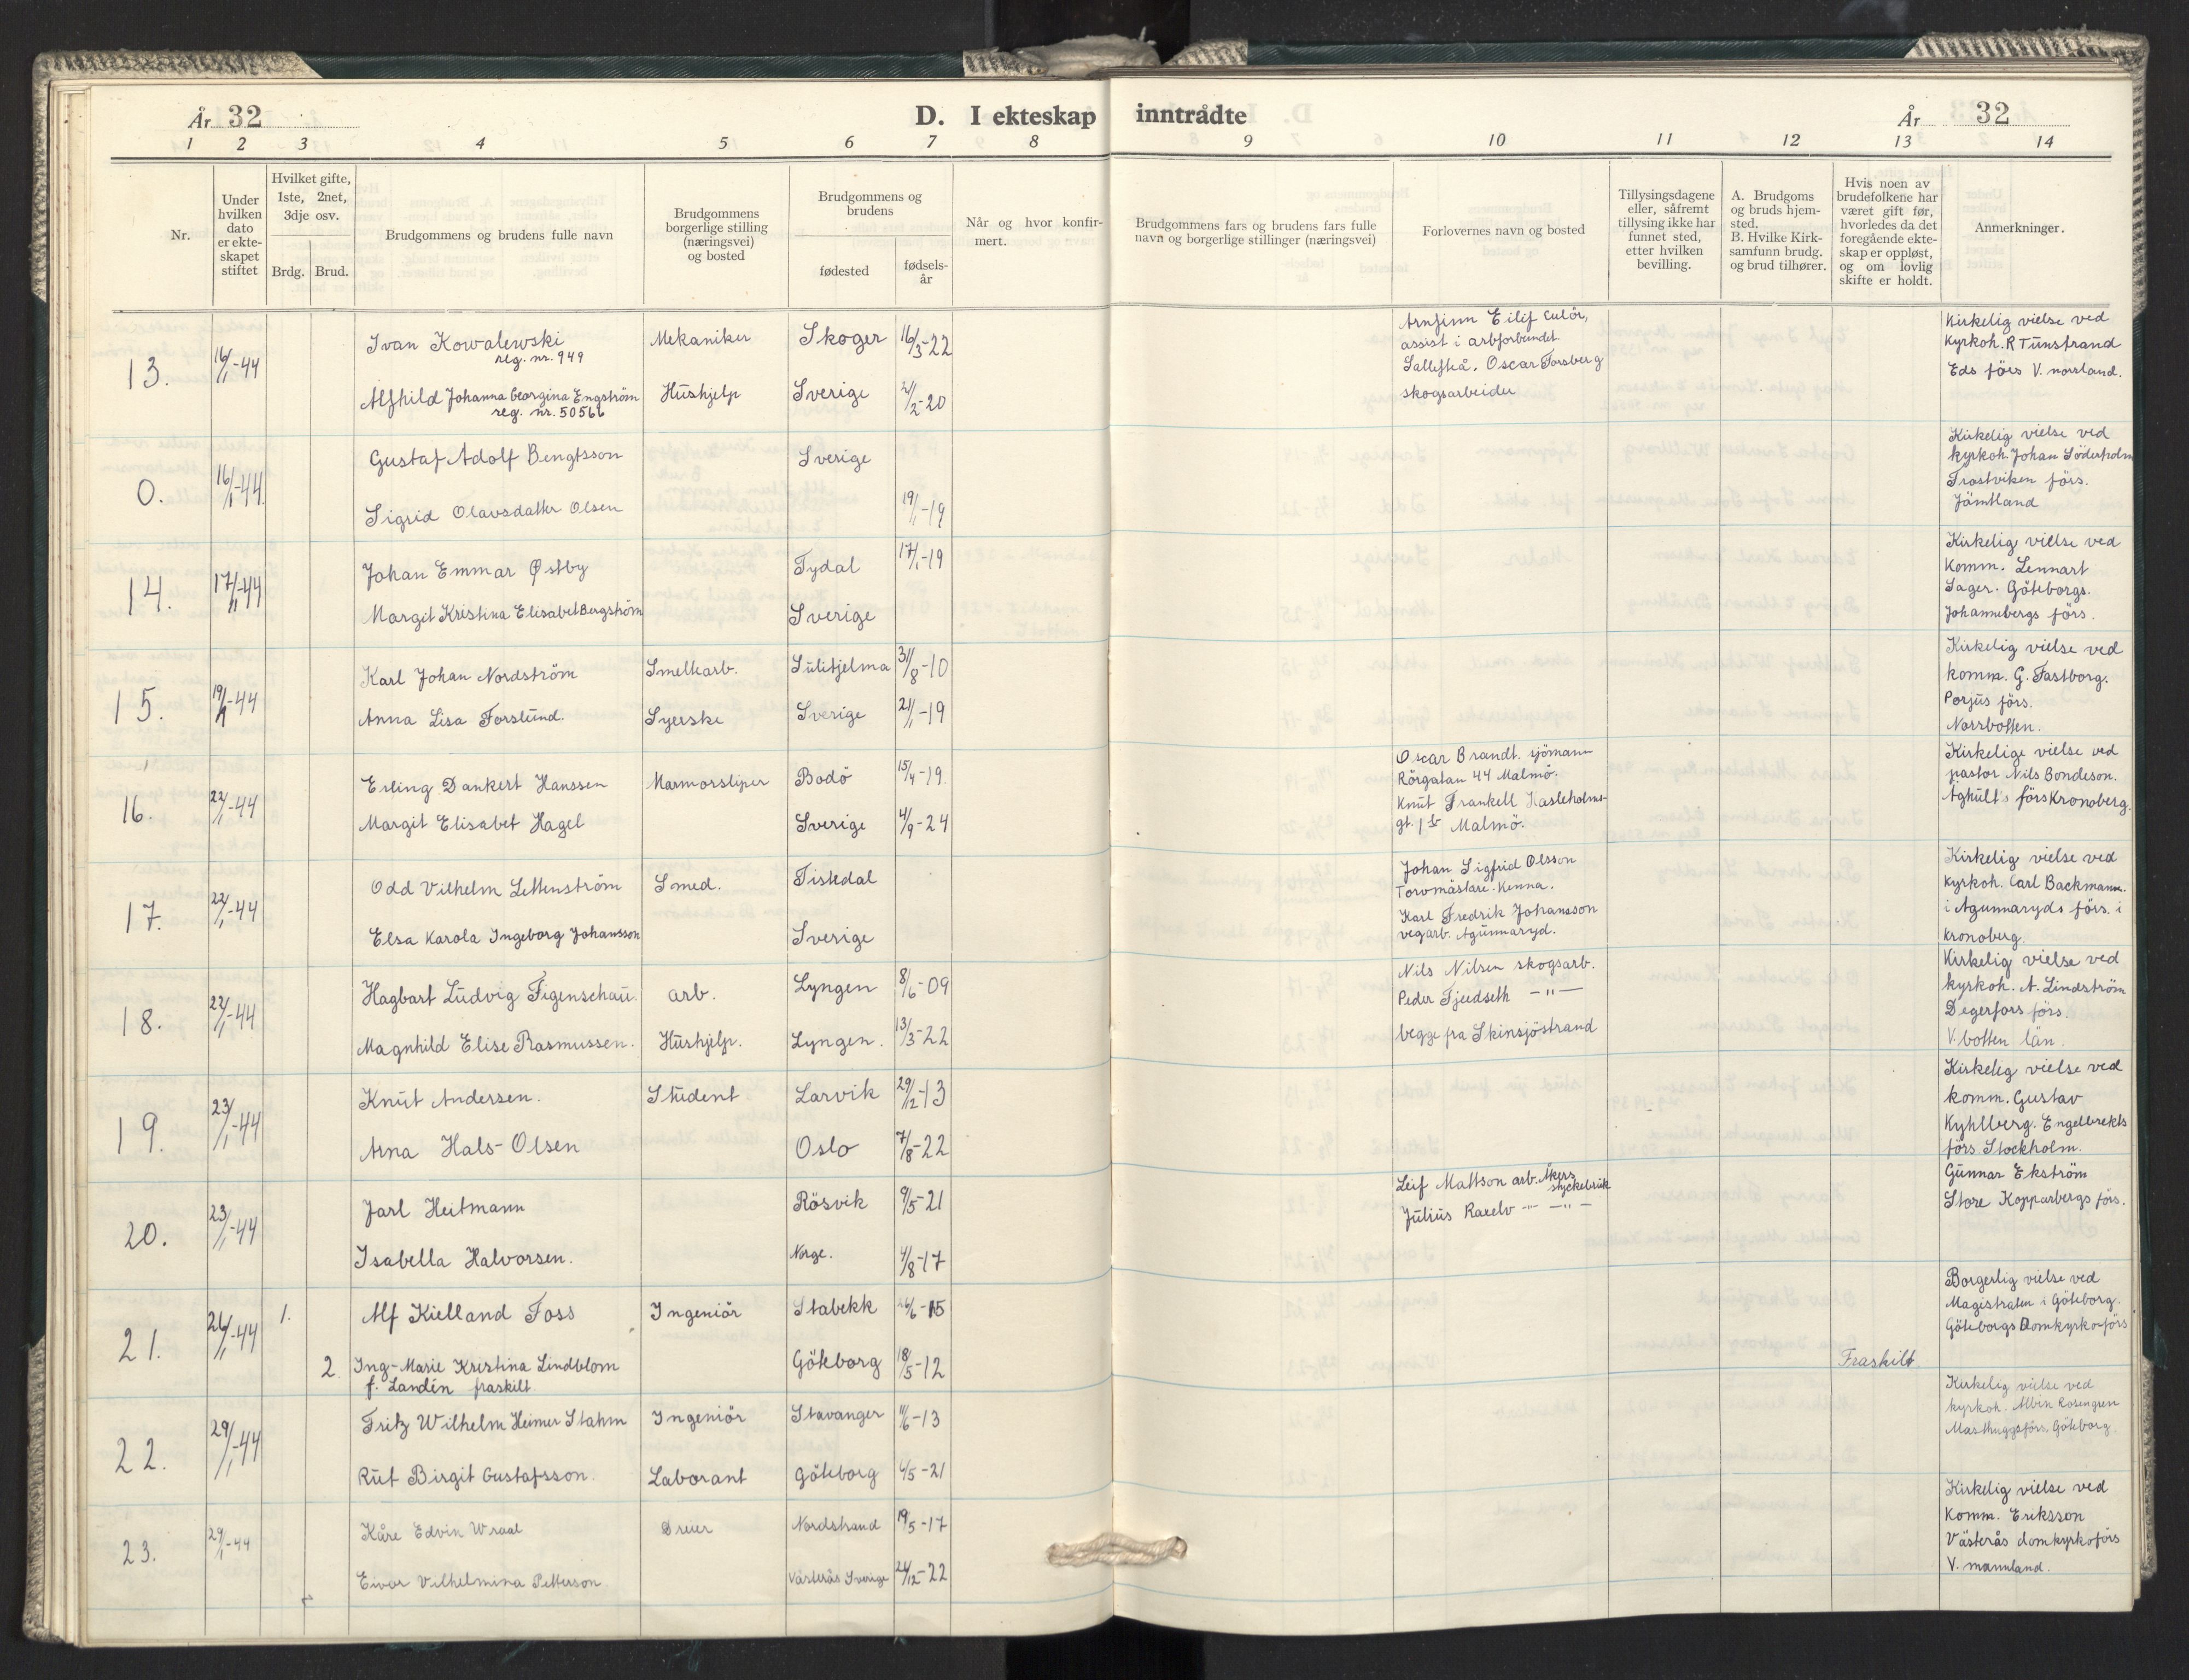 År 32
D. I ekteskap inntrådte
År 32
1 2 3 4 5 6 7 8 9 10 11 12 13 14
Nr.
Under hvilken dato er ekteskapet stiftet
Hvilket gifte, 1ste, 2net, 3dje osv.
Brdg. Brud.
Brudgommens og brudens fulle navn
Brudgommens borgerlige stilling (næringsvei) og bosted
Brudgommens og brudens
fødested
fødsels-år
Når og hvor konfirmert.
Brudgommens fars og brudens fars fulle navn og borgerlige stillinger (næringsvei)
Forlovernes navn og bosted
Tillysingsdagene eller, såfremt tillysing ikke har funnet sted, etter hvilken bevilling.
A. Brudgoms og bruds hjemsted. B. Hvilke Kirksamfunn brudg. og brud tilhører.
Hvis noen av brudefolkene har været gift før, hvorledes da det foregående ekteskap er oppløst, og om lovlig skifte er holdt.
Anmerkninger.
13. 16/1-44
Ivan Kowalewski Mekaniker Skoger 16/3-22
reg. nr. 949
Alfhild Johanna Georgina Engström Hushjelp Sverige 2/2-20
reg. nr. 50566
Arnfinn Eilif
assist i arbforbundet.
Oscar Forsberg
skogsarbeider
Kirkelig vielse ved
Kyrkoh. R Tunstrand
Eds förs V. norrland.
0. 16/1-44
Gustaf Adolf Bengtsson Sverige
Sigrid Olavsdatter Olsen 19/1-19
Kirkelig vielse ved
kyrkoh. Johan Söderholm
Frostviken förs.
Jämtland
14. 17/1-44
Johan Emmar Østby Tydal 17/1-19
Margit Kristina Elisabet Bergström Sverige
Kirkelig vielse ved
Komm. Lennart
Sager. Göteborgs.
Johannebergs förs.
15. 19/1-44
Karl Johan Nordström Smeltearb. Sulitjelma 31/8-10
Anna Lisa Forslund. Syerske Sverige 21/1-19
Kirkelig vielse ved
komm. G. Fastborg.
Porjus förs.
Norrbotten.
16. 22/1-44
Erling Dankert Hanssen Marmorsliper Bodö 15/4-19.
Margit Elisabet Hagel Sverige 4/9-24
Oscar Brandt. sjömann
Rörgatan 44 Malmö.
Knut Frankell Hasleholms-
gt. Malmö.
Kirkelige vielse ved
pastor Nils Bondeson.
Älghults förs Kronoberg.
17. 22/1-44
Odd Vilhelm Lettenström Smed. Fiskdal
Elsa Karola Ingeborg Johansson Sverige
Johan Sigfrid Olsson
Torvmästare. Kenna.
Karl Fredrik Johansson
vegarb. Agunnaryd.
Kirkelig vielse ved
kyrkoh. Carl Backmann.
i Agunnaryds förs. i
Kronoberg.
18. 22/1-44
Hagbart Ludvig Figenschau. arb. Lyngen 8/6-09
Magnhild Elise Rasmussen. Hushjelp. Lyngen. 13/3-22
Nils Nilsen skogsarb.
Peder Tjeldseth —"—
begge fra Skinsjöstrand
Kirkelig vielse ved
kyrkoh. A. Lindström
Degerfors förs.
V. botten län.
19. 23/1-44
Knut Andersen. Student Larvik 29/12-13
Arna Hals-Olsen Oslo 7/8-22
Kirkeleg vielse ved
komm. Gustav
Kyhlberg. Engelbrekts
förs. Stockholm.
20. 23/1-44
Jarl Heitmann Rösvik 9/5-21
Isabella Halvorsen. Norge. 4/8-17
Leif Mattson arb. Åkers styckebruk
Julius —"— —"—
Gunnar Ekström
Store Kopparbergs förs.
21. 26/1-44 1.
Alf Kielland Foss Ingeniör Stabekk 26/6-15
2. Ing-Marie Kristina Lindblom Göteborg 18/5-12
f. Landén fraskilt
Fraskilt
Borgerlig vielse ved
Magistraten i Göteborg.
Göteborgs Domkyrkoförs
22. 29/1-44
Fritz Wilhelm Heimer Stahm Ingeniör Stavanger 11/6-13
Rut Birgit Gustafsson. Laborant Göteborg 4/5-21
Kirkelig vielse ved
kyrkoh. Albin Rosengren
Masthuggsförs. Göteborg.
23. 29/1-44
Kåre Edvin Wraal Dreier Nordstrand 19/5-17
Eivor Vilhelmina Petterson. Västerås Sverige 24/12-22
Kirkelig vielse ved
Komm. Eriksson
Västerås domkyrkoförs
V. mannland.